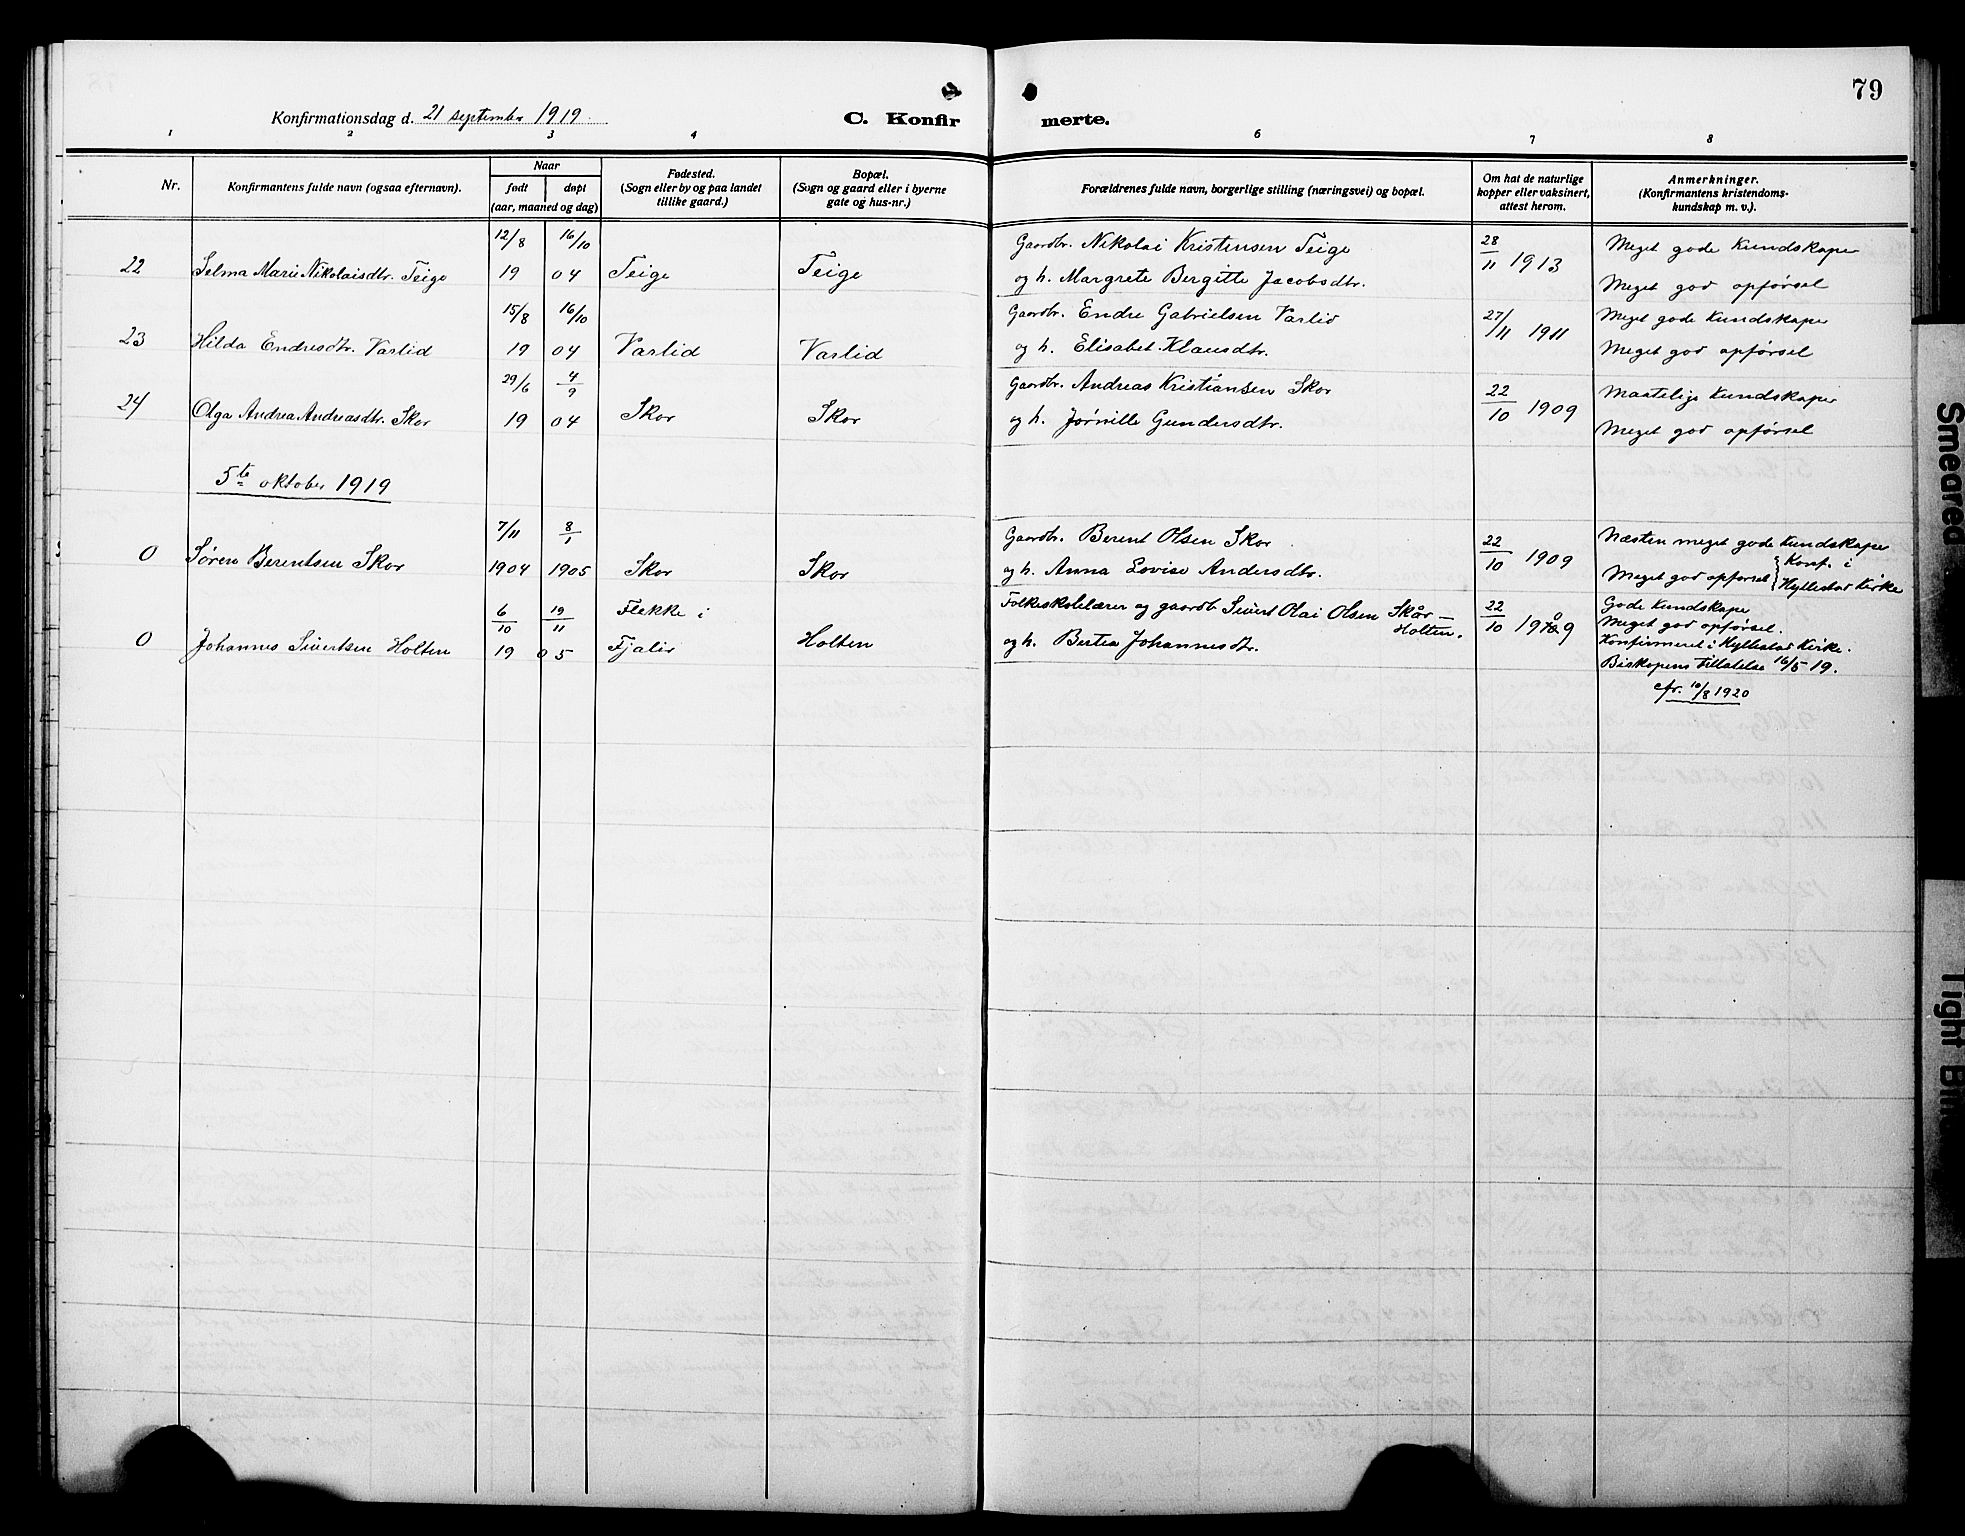 79
Konfirmationsdag d. 21 september 1919.
C. Konfirmerte.
1 2 3 4 6 7 8
Nr.
Konfirmantens fulde navn (ogsaa efternavn).
Naar
født døpt
(aar, maaned og dag)
Fødested.
(Sogn eller by og paa landet
tillike gaard.)
Bopæl.
(Sogn og gaard eller i byerne
gate og hus-nr.)
Forældrenes fulde navn, borgerlige stilling (næringsvei) og bopæl.
Om hat de naturlige
kopper eller vaksinert,
attest herom.
Anmerkninger.
(Konfirmantens kristendoms-
kundskap m. v.).
12/8 16/10 Gaardbr. Nikolai Kristensen Teige 28/11 1913 Meget gode Kundskaper
22 Selma Marie Nikolaisdtr. Teige 19 04 Teige Teige og h. Margrete Bergitte Jacobsdtr. Meget god opførsel
15/8 16/10 Gaardbr. Endre Gabrielsen Varlid 27/11 1911 Meget gode Kundskaper
23 Hilda Endresdtr. Varlid 19 04 Varlid Varlid og h. Elisabet Klausdtr. Meget god opførsel
29/6 4/9 Gaardbr. Andreas Kristiansen Skor 22/10 1909 Maatelige Kundskaper
24 Olga Andrea Andreasdtr. Skor 19 04 Skor Skor og h. Jørnille Gundersdtr. Meget god opførsel
5te oktober 1919
7/11 8/1 Gaardbr. Berent Olsen Skor 22/10 1909 Næsten meget gode Kundskaper
0 Søren Berentsen Skor 1904 1905 Skor Skor og h. Anna Lovise Andersdtr. Meget god opførsel { Konf. i
Hyllestad Kirke
6/10 19/11 Flekke i Folkeskolelærer og gaardb. Sivert Olai Olsen Skår- 22/10 1909 Gode Kundskaper
Holten. Meget god opførsel.
0 Johannes Sivertsen Holten 19 05 Fjaler Holten og h. Bertea Johannesdtr. Konfirmeret i Hyllestad Kirke.
Biskopens tillatelse 16/5 19.
cfr. 10/8 1920
Smeared
Tight Bin